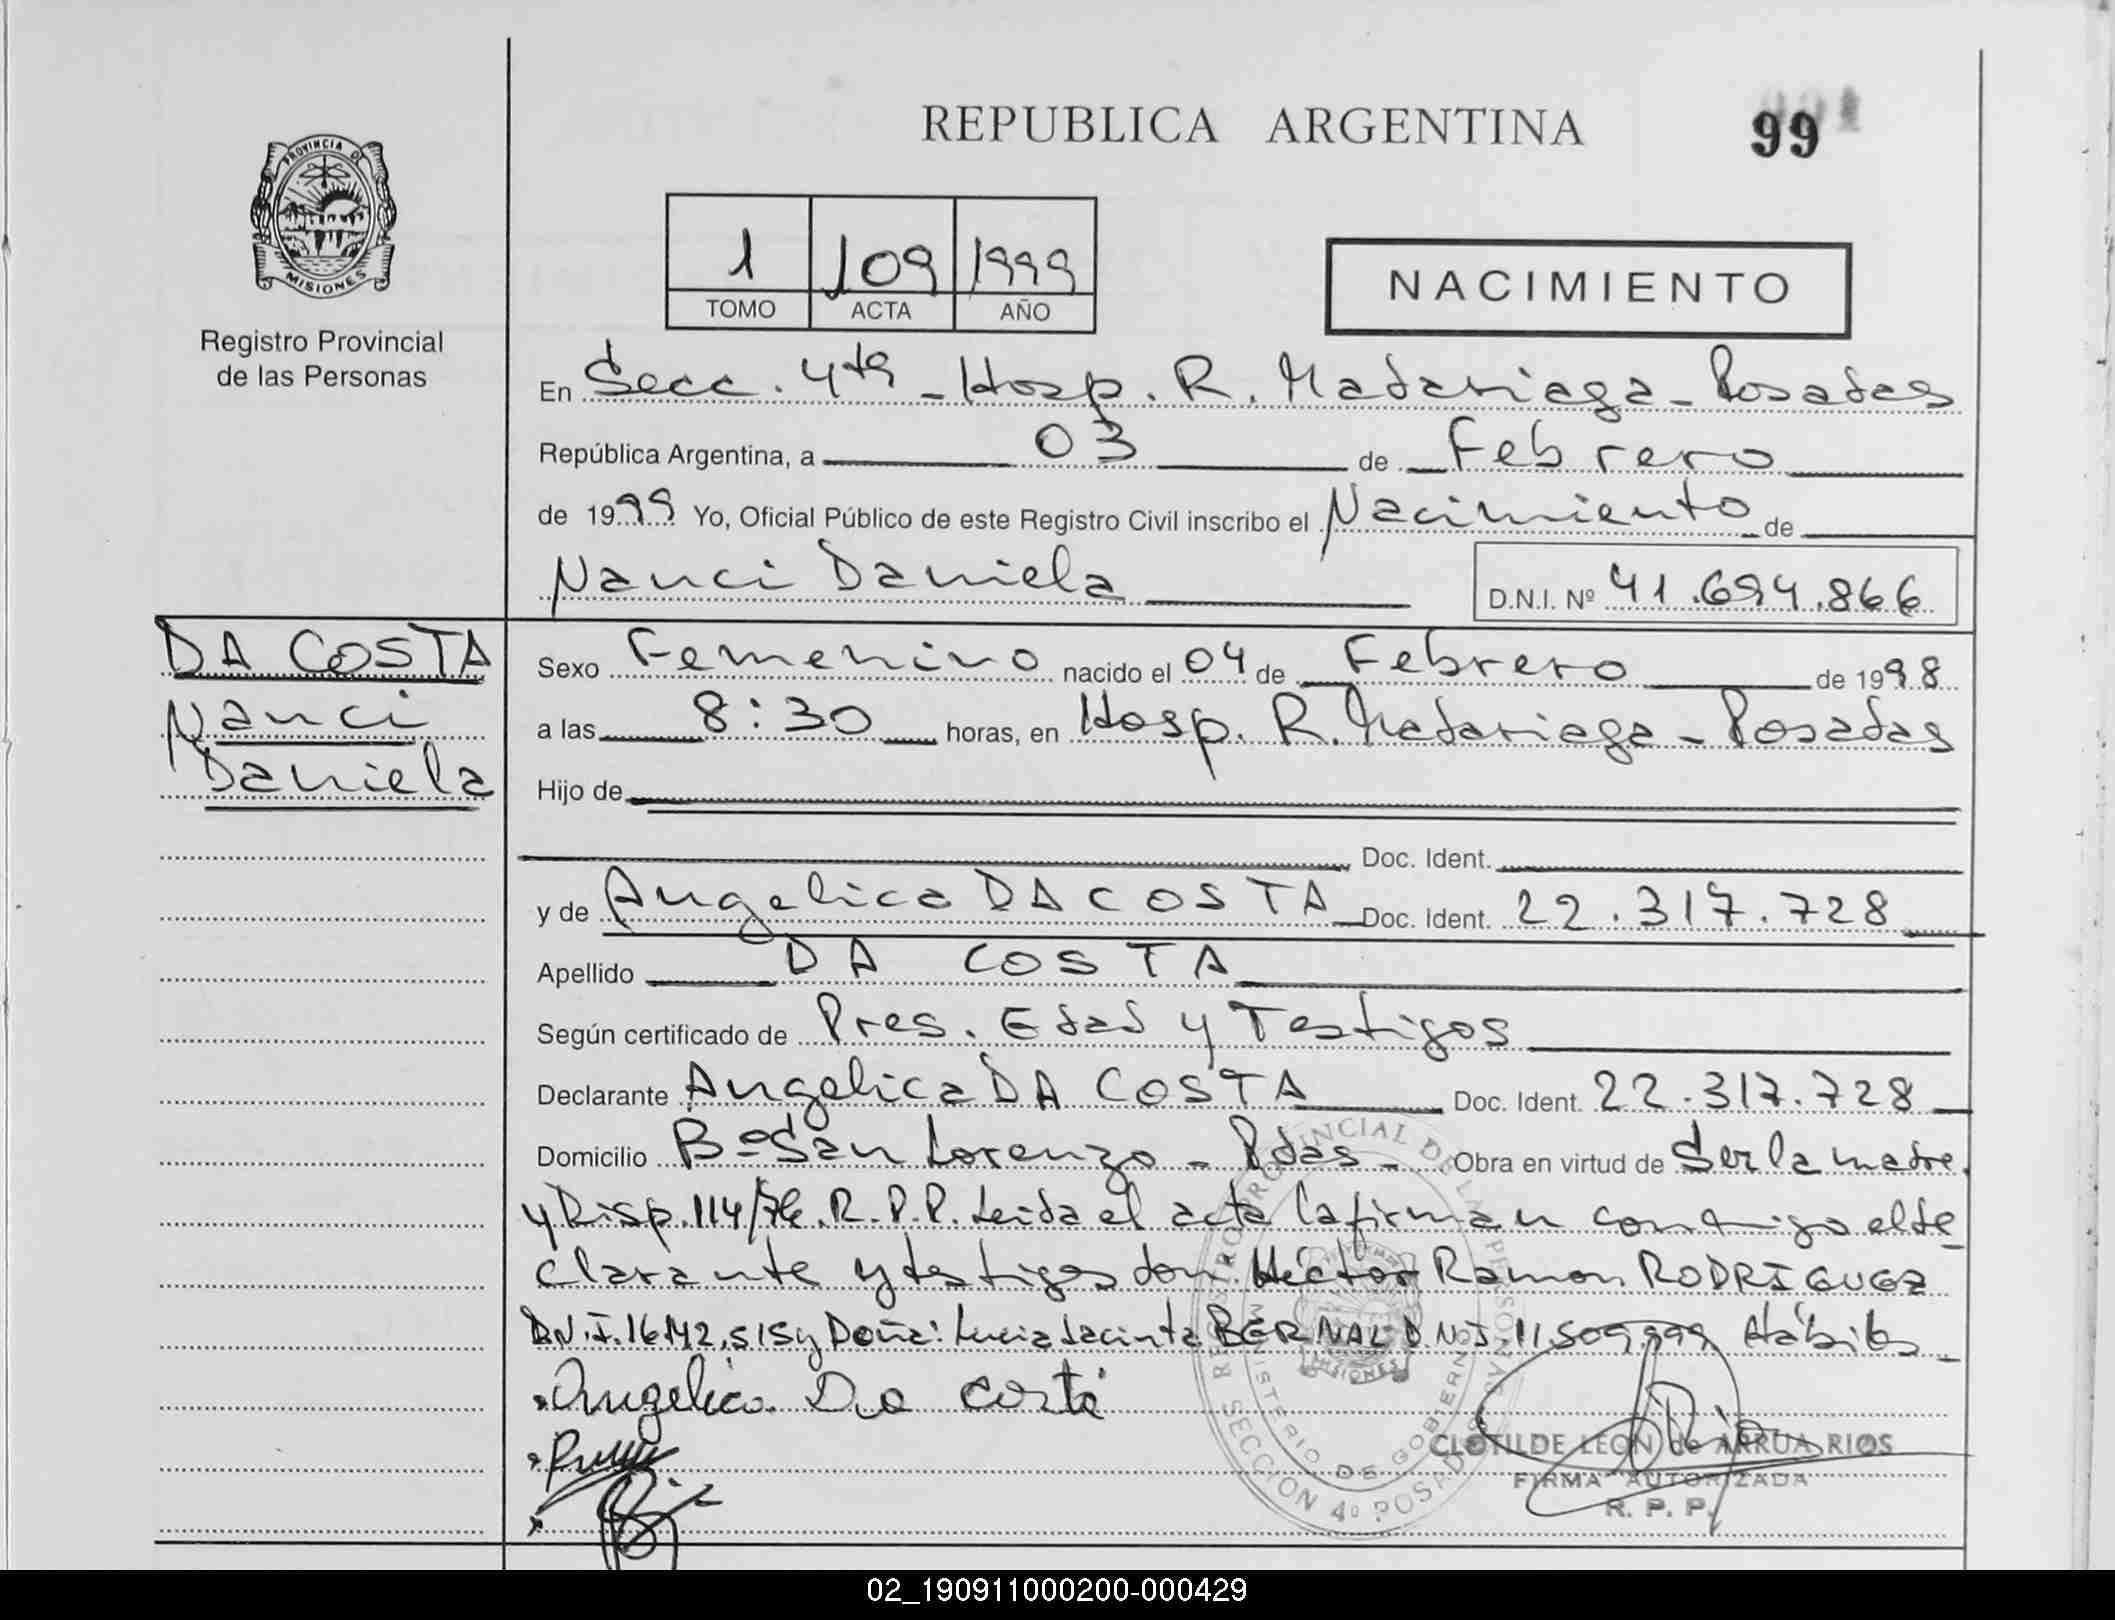 REPUBLICA ARGENTINA
99
PROVINCIA DE
MISIONES
Registro Provincial
de las Personas
1 109 1999
TOMO ACTA AÑO
NACIMIENTO
En Secc. 4ta - Hosp. R. Madariaga - Posadas
República Argentina, a 03 de Febrero
de 1999 Yo, Oficial Público de este Registro Civil inscribo el Nacimiento de
Nanci Daniela D.N.I. Nº 41.694.866
DA COSTA
Nanci
Daniela
Sexo Femenino nacido el 04 de Febrero de 1998
a las 8:30 horas, en Hosp. R. Madariaga - Posadas
Hijo de
Doc. Ident.
y de Angelica DA COSTA Doc. Ident. 22.317.728
Apellido DA COSTA
Según certificado de Pres. Edad y Testigos
Declarante Angelica DA COSTA Doc. Ident. 22.317.728
Domicilio Bº San Lorenzo - Pdas - Obra en virtud de Ser la madre
y Disp. 114/76. R.P.P. Leida el acta la firman conmigo el de
clarante y testigos don: Héctor Ramon RODRIGUEZ
D.N.I. 16.142.515 y Doña: Lucia Jacinta BERNAL D.N.I. 11.509.999 Hábiles
Angelica Da Costa
REGISTRO PROVINCIAL DE LAS PERSONAS
MINISTERIO DE GOBIERNO
MISIONES
SECCION 4º POSADAS
CLOTILDE LEON de ARRUA RIOS
FIRMA AUTORIZADA
R. P. P.
02_190911000200-000429